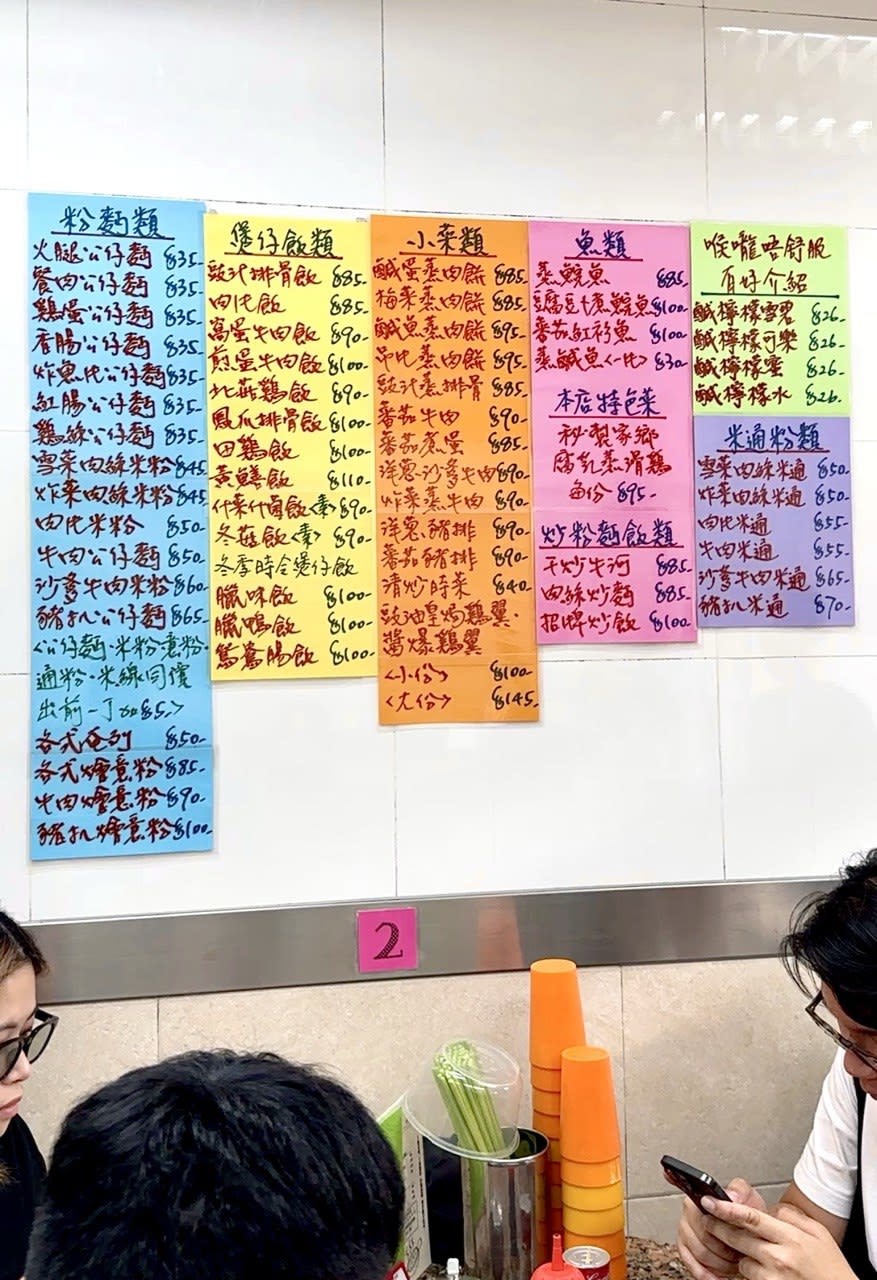 粉麵類
火腿公仔麵 $35-
餐肉公仔麵 $35-
鷄蛋公仔麵 $35-
香腸公仔麵 $35-
炸魚片公仔麵 $35-
紅腸公仔麵 $35-
鷄絲公仔麵 $35-
雪菜肉絲米粉 $45-
炸菜肉絲米粉 $45-
肉片米粉 $50-
牛肉公仔麵 $50-
沙爹牛肉米粉 $60-
豬扒公仔麵 $65-
<公仔麵·米粉·意粉·
通粉·米線同價
出前一丁加$5->
各式 $50-
各式燴意粉 $85-
牛肉燴意粉 $90-
豬扒燴意粉 $100-
煲仔飯類
豉汁排骨飯 $85-
肉片飯 $85-
窩蛋牛肉飯 $90-
煎蛋牛肉飯 $100-
北菇鷄飯 $90-
鳳爪排骨飯 $100-
田鷄飯 $100-
黃鱔飯 $110-
什菜什菌飯<素> $90-
冬菇飯<素> $90-
冬季時令煲仔飯
臘味飯 $100-
臘鴨飯 $100-
鴛鴦腸飯 $100-
小菜類
鹹蛋蒸肉餅 $85-
梅菜蒸肉餅 $85-
鹹魚蒸肉餅 $95-
吊片蒸肉餅 $95-
豉汁蒸排骨 $85-
蕃茄牛肉 $90-
蕃茄煮蛋 $85-
洋蔥沙爹牛肉 $90-
炸菜蒸牛肉 $90-
洋蔥豬排 $90-
蕃茄豬排 $90-
清炒時菜 $40-
豉油皇焗鷄翼·
醬爆鷄翼
<小份> $100-
<大份> $145-
魚類
蒸鯇魚 $85-
豆腐豆卜煮鯇魚 $100-
蕃茄紅衫魚 $100-
蒸鹹魚<一片> $30-
本店特色菜
秘製家鄉
腐乳蒸滑鷄
每份 $95-
炒粉麵飯類
干炒牛河 $85-
肉絲炒麵 $85-
招牌炒飯 $100-
喉嚨唔舒服
有好介紹
鹹檸檬雪碧 $26-
鹹檸檬可樂 $26-
鹹檸檬蜜 $26-
鹹檸檬水 $26-
米通粉類
雪菜肉絲米通 $50-
炸菜肉絲米通 $50-
肉片米通 $55-
牛肉米通 $55-
沙爹牛肉米通 $65-
豬扒米通 $70-
2